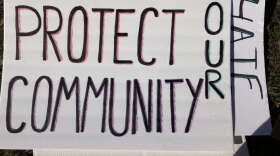 PROTECT OUR
COMMUNITY
HATE